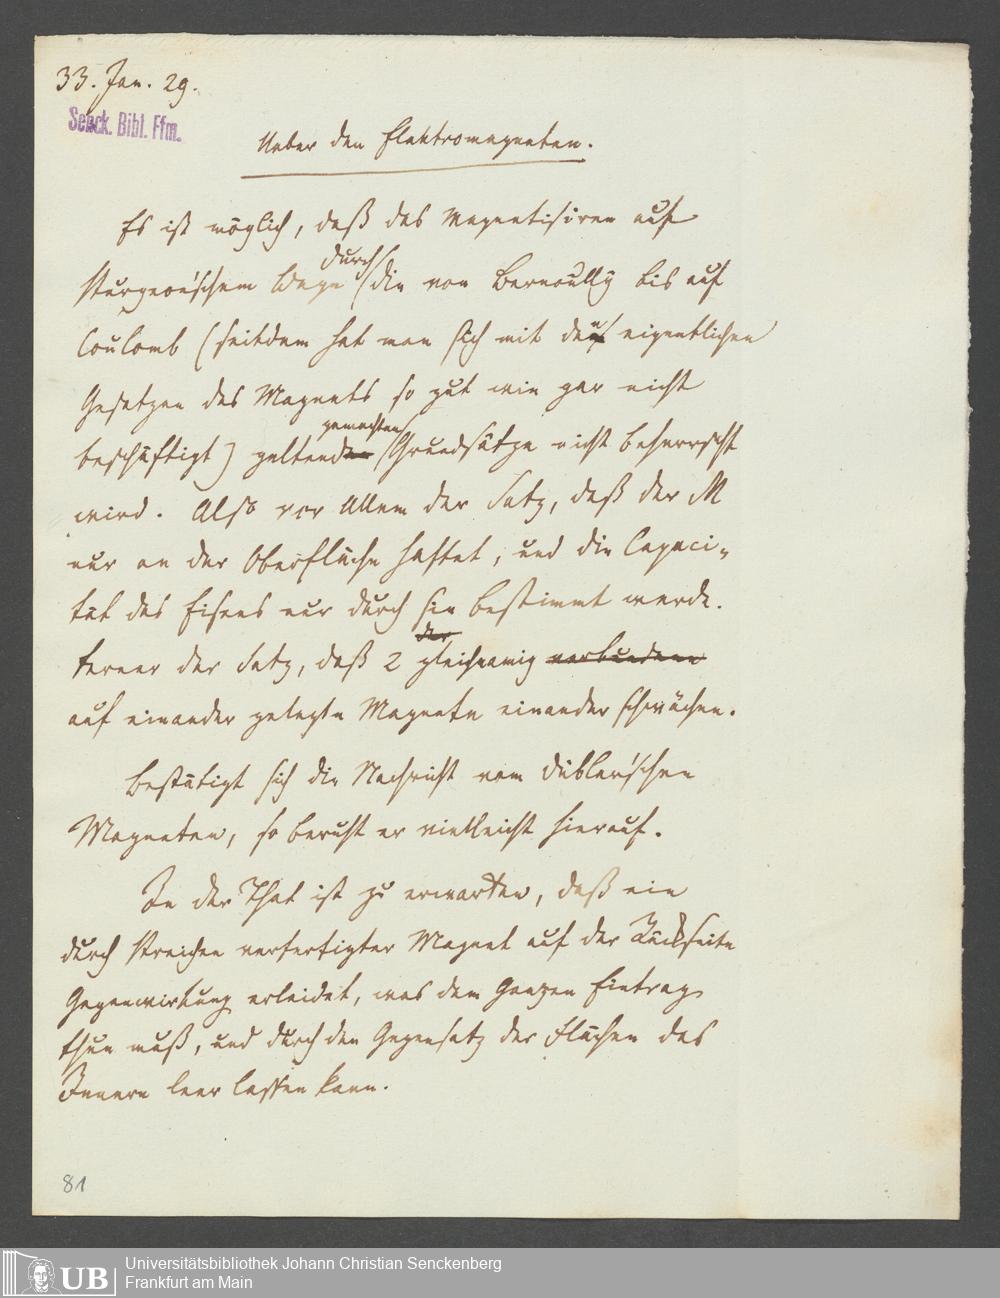 33. Jan. 29.
Senck. Bibl. Ffm.
Ueber den Elektromagneten.
Es ist möglich, daß das Magnetisiren auf
Sturgeon'schem Wege durch die von Bernoully bis auf
Coulomb (seitdem hat man sich mit den eigentlichen
Gesetzen des Magnets so gut wie gar nicht
beschäftigt) geltend gemachten Grundsätze nicht beherrscht
wird. Also vor Allem der Satz, daß der M
nur an der Oberfläche haftet, und die Capaci-
tät des Eisens nur durch sie bestimmt werde.
Ferner der Satz, daß 2 gleichnamig verbundene
auf einander gelegte Magnete einander schwächen.
Bestätigt sich die Nachricht vom Dübler'schen
Magneten, so beruht er vielleicht hierauf.
In der That ist zu erwarten, daß ein
durch Streichen verfertigter Magnet auf der Rückseite
Gegenwirkung erleidet, was dem Ganzen Eintrag
thun muß, und durch den Gegensatz der Flächen das
Innern leer lassen kann.
81
UB
Universitätsbibliothek Johann Christian Senckenberg
Frankfurt am Main